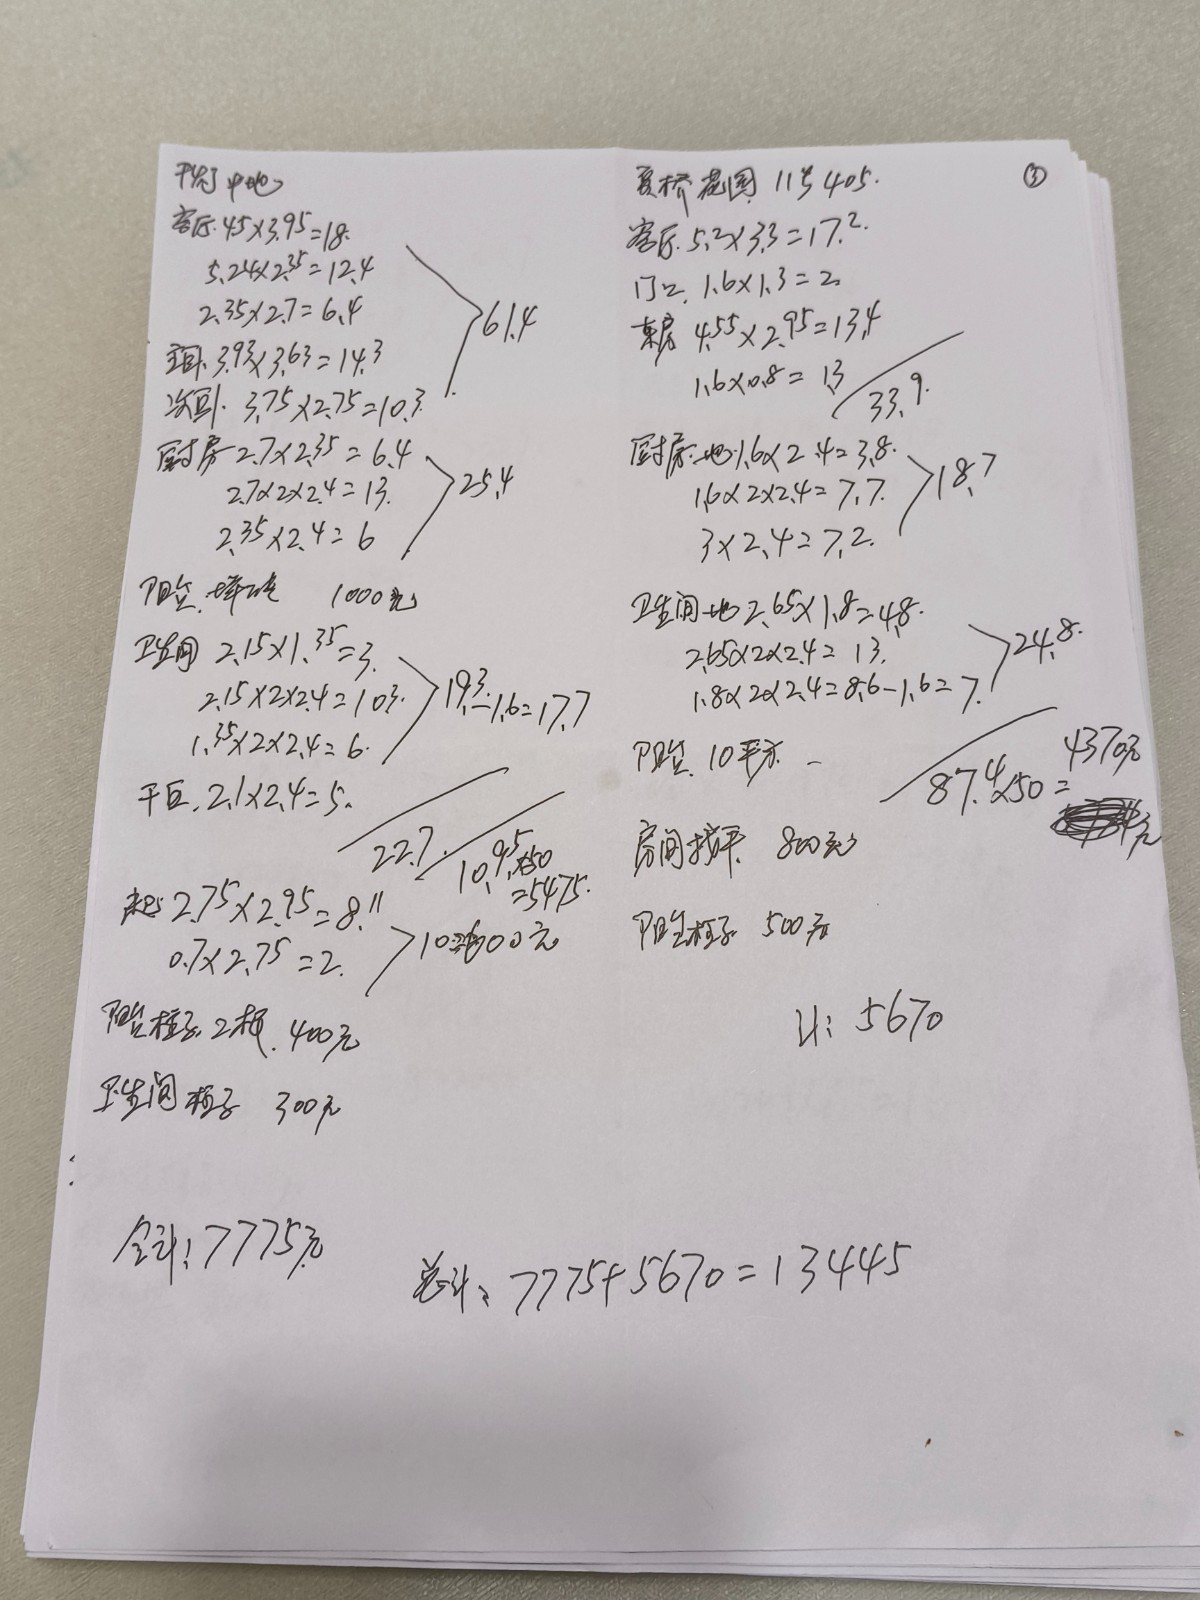 客厅 4.5×3.95=18.
5.24×2.35=12.4
2.35×2.7=6.4
主卧 3.93×3.63=14.3
次卧. 3.75×2.75=10.3
61.4
厨房 2.7×2.35=6.4
2.7×2×2.4=13.
2.35×2.4=6
25.4
阳台. 1000元
卫生间 2.15×1.35=3.
2.15×2×2.4=10.3.
1.35×2×2.4=6.
19.3-1.6=17.7
干区. 2.1×2.4=5.
22.7.
10,9.5×50
=5475.
2.75×2.95=8.11
0.7×2.75=2.
600元
阳台柱子2根. 400元
卫生间柱子 300元
合计: 7775元
夏桥花园 11号405.
③
客厅. 5.2×3.3=17.2.
门口. 1.6×1.3=2.
4.55×2.95=13.4
1.6×0.8=1.3
33.9.
厨房.地.1.6×2.4=3.8.
1.6×2×2.4=7.7.
3×2.4=7.2.
18.7
卫生间地 2.65×1.8=4.8.
2.65×2×2.4=13.
1.8×2×2.4=8.6-1.6=7.
24.8.
阳台. 10平方
87.4×50=4370元
元
房间找平. 800元
阳台柱子 500元
计: 5670
总计: 7775+5670=13445